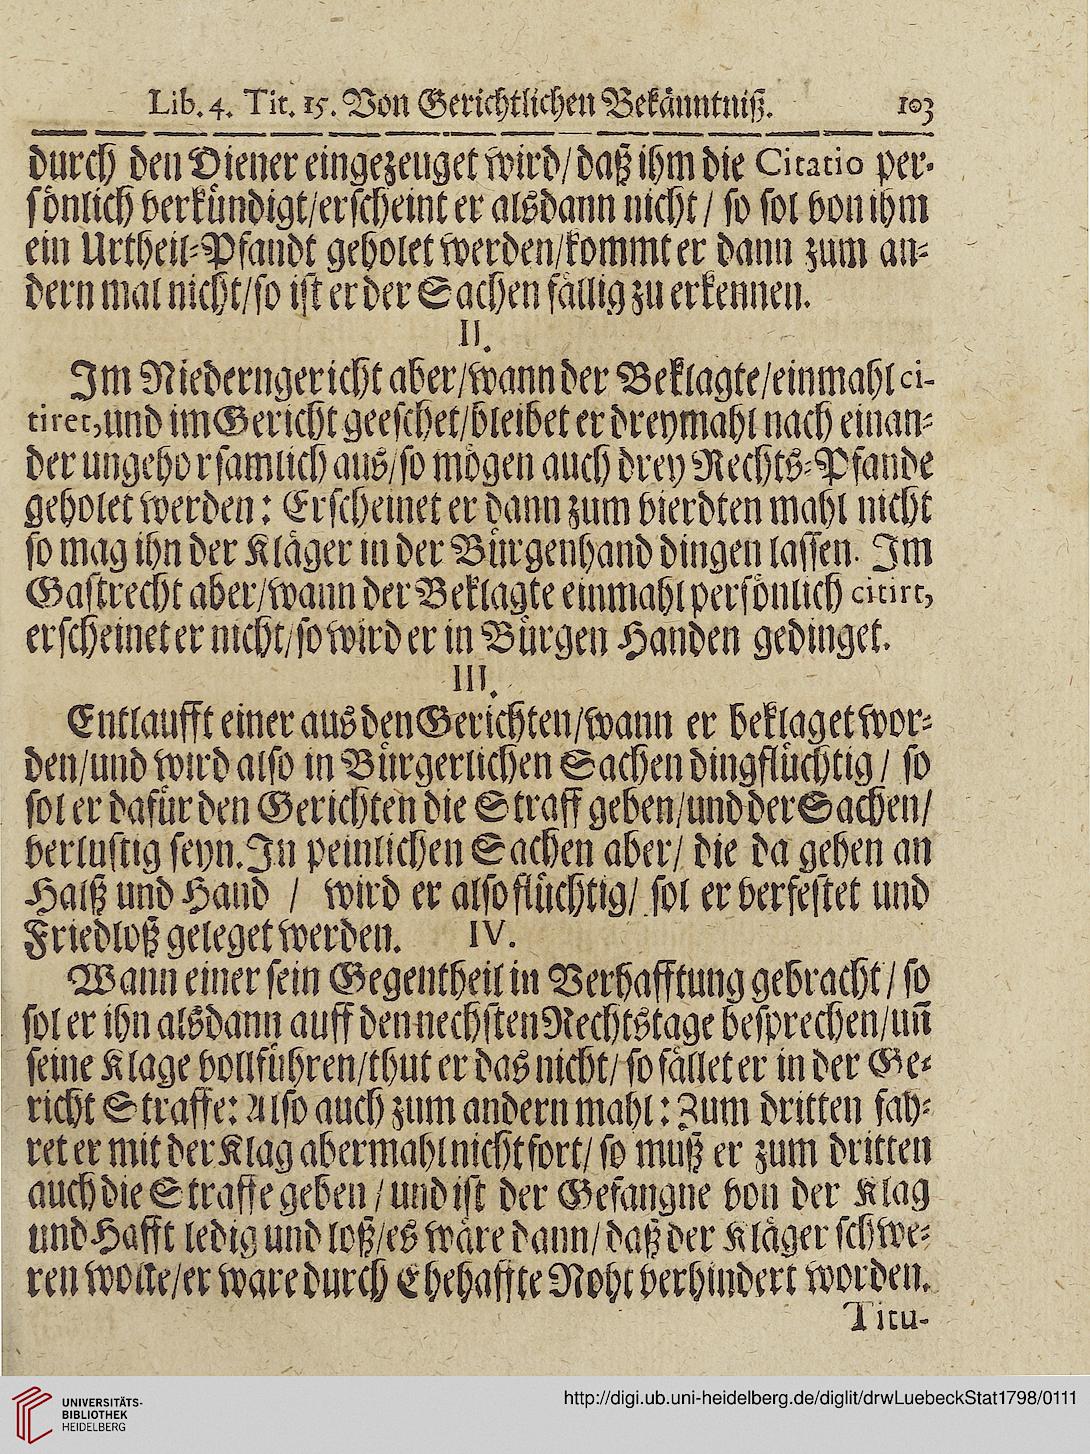 Lib. 4. Tit. 15. Von Gerichtlichen Bekänntniß. 103
durch den Diener eingezeuget wird/ daß ihm die Citatio per-
sönlich verkündigt/erscheint er alsdann nicht / so sol von ihm
ein Urtheil-Pfandt geholet werden/kommt er dann zum an-
dern mal nicht/so ist er der Sachen fällig zu erkennen.
II.
Im Niederngericht aber/wann der Beklagte/einmahl ci-
tiret, und im Gericht geeschet/bleibet er dreymahl nach einan-
der ungehorsamlich aus/so mögen auch drey Rechts-Pfande
geholet werden: Erscheinet er dann zum vierdten mahl nicht
so mag ihn der Kläger in der Bürgenhand dingen lassen. Im
Gastrecht aber/wann der Beklagte einmahl persönlich citirt,
erscheinet er nicht/so wird er in Bürgen Handen gedinget.
III.
Entlaufft einer aus den Gerichten/wann er beklaget wor-
den/und wird also in Bürgerlichen Sachen dingflüchtig / so
sol er dafür den Gerichten die Straff geben/und der Sachen/
verlustig seyn. In peinlichen Sachen aber/ die da gehen an
Halß und Hand / wird er also flüchtig/ sol er verfestet und
Friedloß geleget werden. IV.
Wann einer sein Gegentheil in Verhafftung gebracht / so
sol er ihn alsdann auff den nechsten Rechtstage besprechen/uñ
seine Klage vollführen/thut er das nicht/ so fället er in der Ge-
richt Straffe: Also auch zum andern mahl: Zum dritten fah-
ret er mit der Klag abermahl nicht fort/ so muß er zum dritten
auch die Straffe geben / und ist der Gefangne von der Klag
und Hafft ledig und loß/es wäre dann/ daß der Kläger schwe-
ren wolte/er ware durch Ehehaffte Noht verhindert worden.
Titu-
UNIVERSITÄTS-
BIBLIOTHEK
HEIDELBERG
http://digi.ub.uni-heidelberg.de/diglit/drwLuebeckStat1798/0111